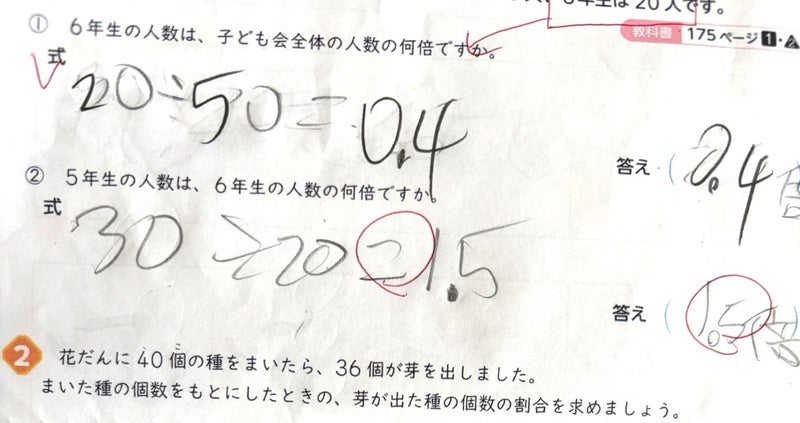 6年生は20人です。
教科書 175ページ 1・
① 6年生の人数は、子ども会全体の人数の何倍ですか。
式
20÷50=0.4
答え (0.4倍
② 5年生の人数は、6年生の人数の何倍ですか。
式
30÷20=1.5
答え (1.5倍
2 花だんに40個の種をまいたら、36個が芽を出しました。
まいた種の個数をもとにしたときの、芽が出た種の個数の割合を求めましょう。